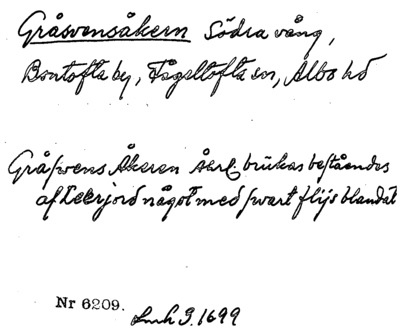 Gråsvensåkern Södra vång,
Bontofta by, Fågeltofta sn, Albo hd
Gråswens Åkeren Åhrl. brukas bestående
af Leerjord något med swart flijs blandat
Nr 6209.
Lmh 9. 1699